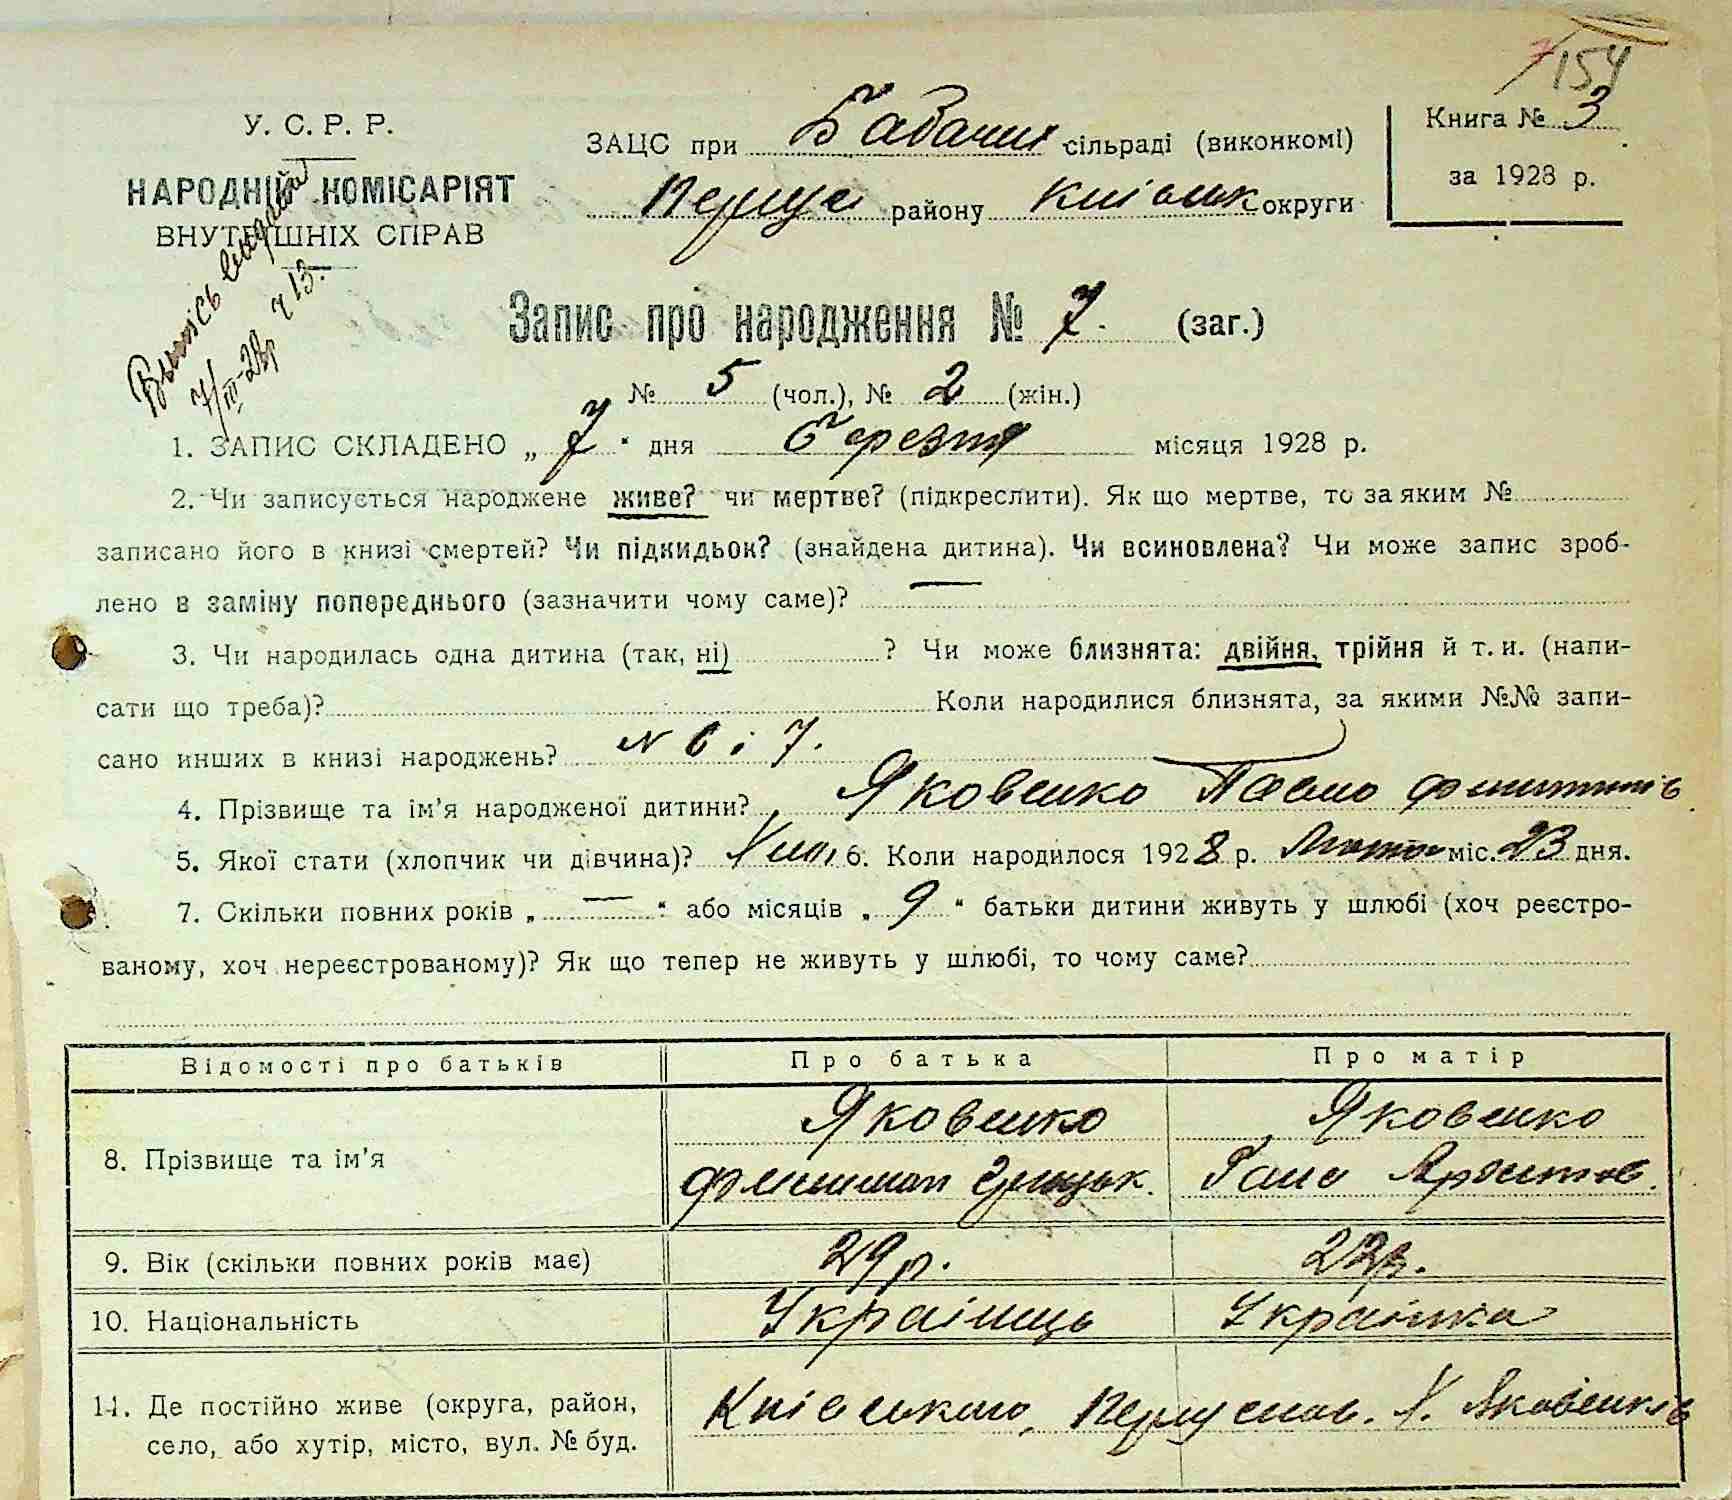 154
У. С. Р. Р.
НАРОДНІЙ КОМІСАРІЯТ
ВНУТРІШНІХ СПРАВ
ЗАЦС при Бабачих сільраді (виконкомі)
району Київськ округи
Книга № 3
за 1928 р.
Выпись выдана
7/III-28р ч 13.
Запис про народження № 7. (заг.)
№ 5 (чол.), № 2 (жін.)
1. ЗАПИС СКЛАДЕНО „ 7 “ дня березня місяця 1928 р.
2. Чи записується народжене живе? чи мертве? (підкреслити). Як що мертве, то за яким №
записано його в книзі смертей? Чи підкидьок? (знайдена дитина). Чи всиновлена? Чи може запис зроб-
лено в заміну попереднього (зазначити чому саме)? —
3. Чи народилась одна дитина (так, ні) ? Чи може близнята: двійня, трійня й т. и. (напи-
сати що треба)? Коли народилися близнята, за якими №№ запи-
сано инших в книзі народжень? № 6 і 7.
4. Прізвище та ім’я народженої дитини? Яковенко Павло
5. Якої стати (хлопчик чи дівчина)? Хлоп. 6. Коли народилося 1928 р. Лютого міс. 23 дня.
7. Скільки повних років „ — “ або місяців „ 9 “ батьки дитини живуть у шлюбі (хоч реєстро-
ваному, хоч нереєстрованому)? Як що тепер не живуть у шлюбі, то чому саме?
Відомості про батьків Про батька Про матір
8. Прізвище та ім’я Яковенко Яковенко
Грицьк. Гана
9. Вік (скільки повних років має) 29 р. 22 р.
10. Національність Українець Українка
11. Де постійно живе (округа, район,
село, або хутір, місто, вул. № буд.
Київського, Х. Яковенків